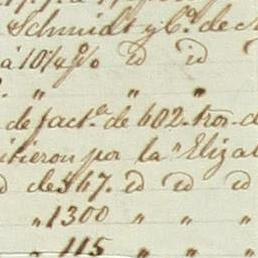 Schmidt y Cª. de
à 10¼ % id id
" " "
de factª. de 602 tros. d
itieron por la "Eliza
de $47. id id id
" 1300 " " "
" 115 " " "